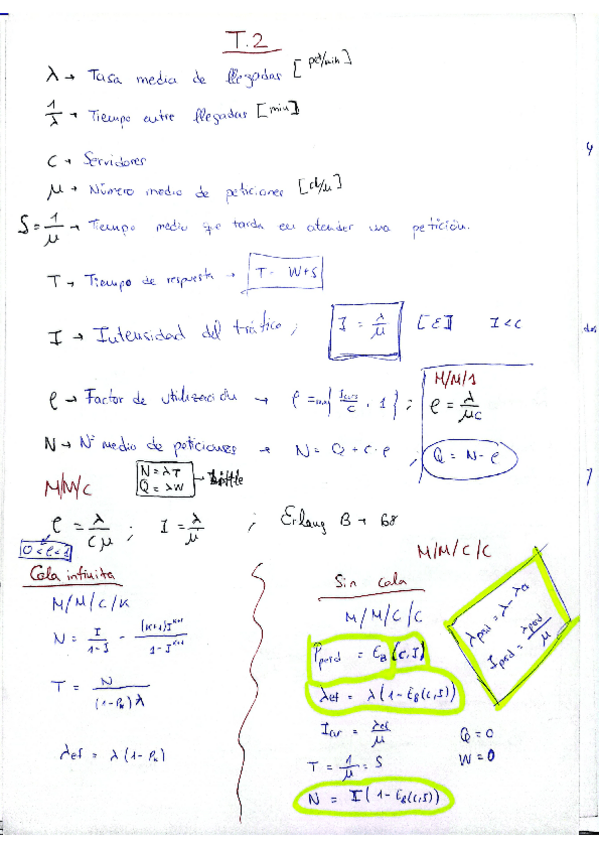 T.2
λ → Tasa media de llegadas [pet/min]
1/λ → Tiempo entre llegadas [min]
C → Servidores
4
μ → Número medio de peticiones
S = 1/μ → Tiempo medio que tarda en atender una petición.
T → Tiempo de respuesta → T = W+S
I → Intensidad del tráfico; I = λ/μ [E] I < C
dos
M/M/1
ρ → Factor de utilización → ρ = min{ Icurs/C , 1 }; ρ = λ/μC
N → Nº medio de peticiones → N = Q + C·ρ ; Q = N - ρ
7
N = λT
Q = λW → Little
M/M/C
ρ = λ/Cμ ; I = λ/μ ; Erlang B → 68
0 < ρ < 1
M/M/C/C
Cola infinita
M/M/C/K
N = I/1-I - (K+1)I^K+1/1-I^K+1
T = N/(1-Pk)λ
λef = λ(1-Pk)
Sin cola
M/M/C/C
Pperd = EB(C,I)
λef = λ(1-EB(C,S))
Icur = λef/μ
Q=0
T = 1/μ = S
W=0
N = I(1-EB(C,S))
λperd = λ-λef
Iperd = λperd/μ